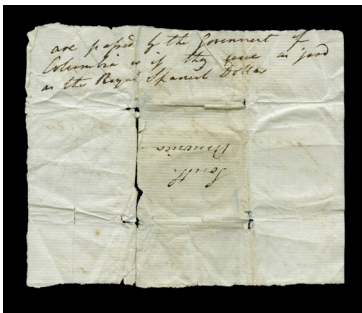 are passed by the Government of
Columbia as if they were as good
as the Royal Spanish Dollar
South
America